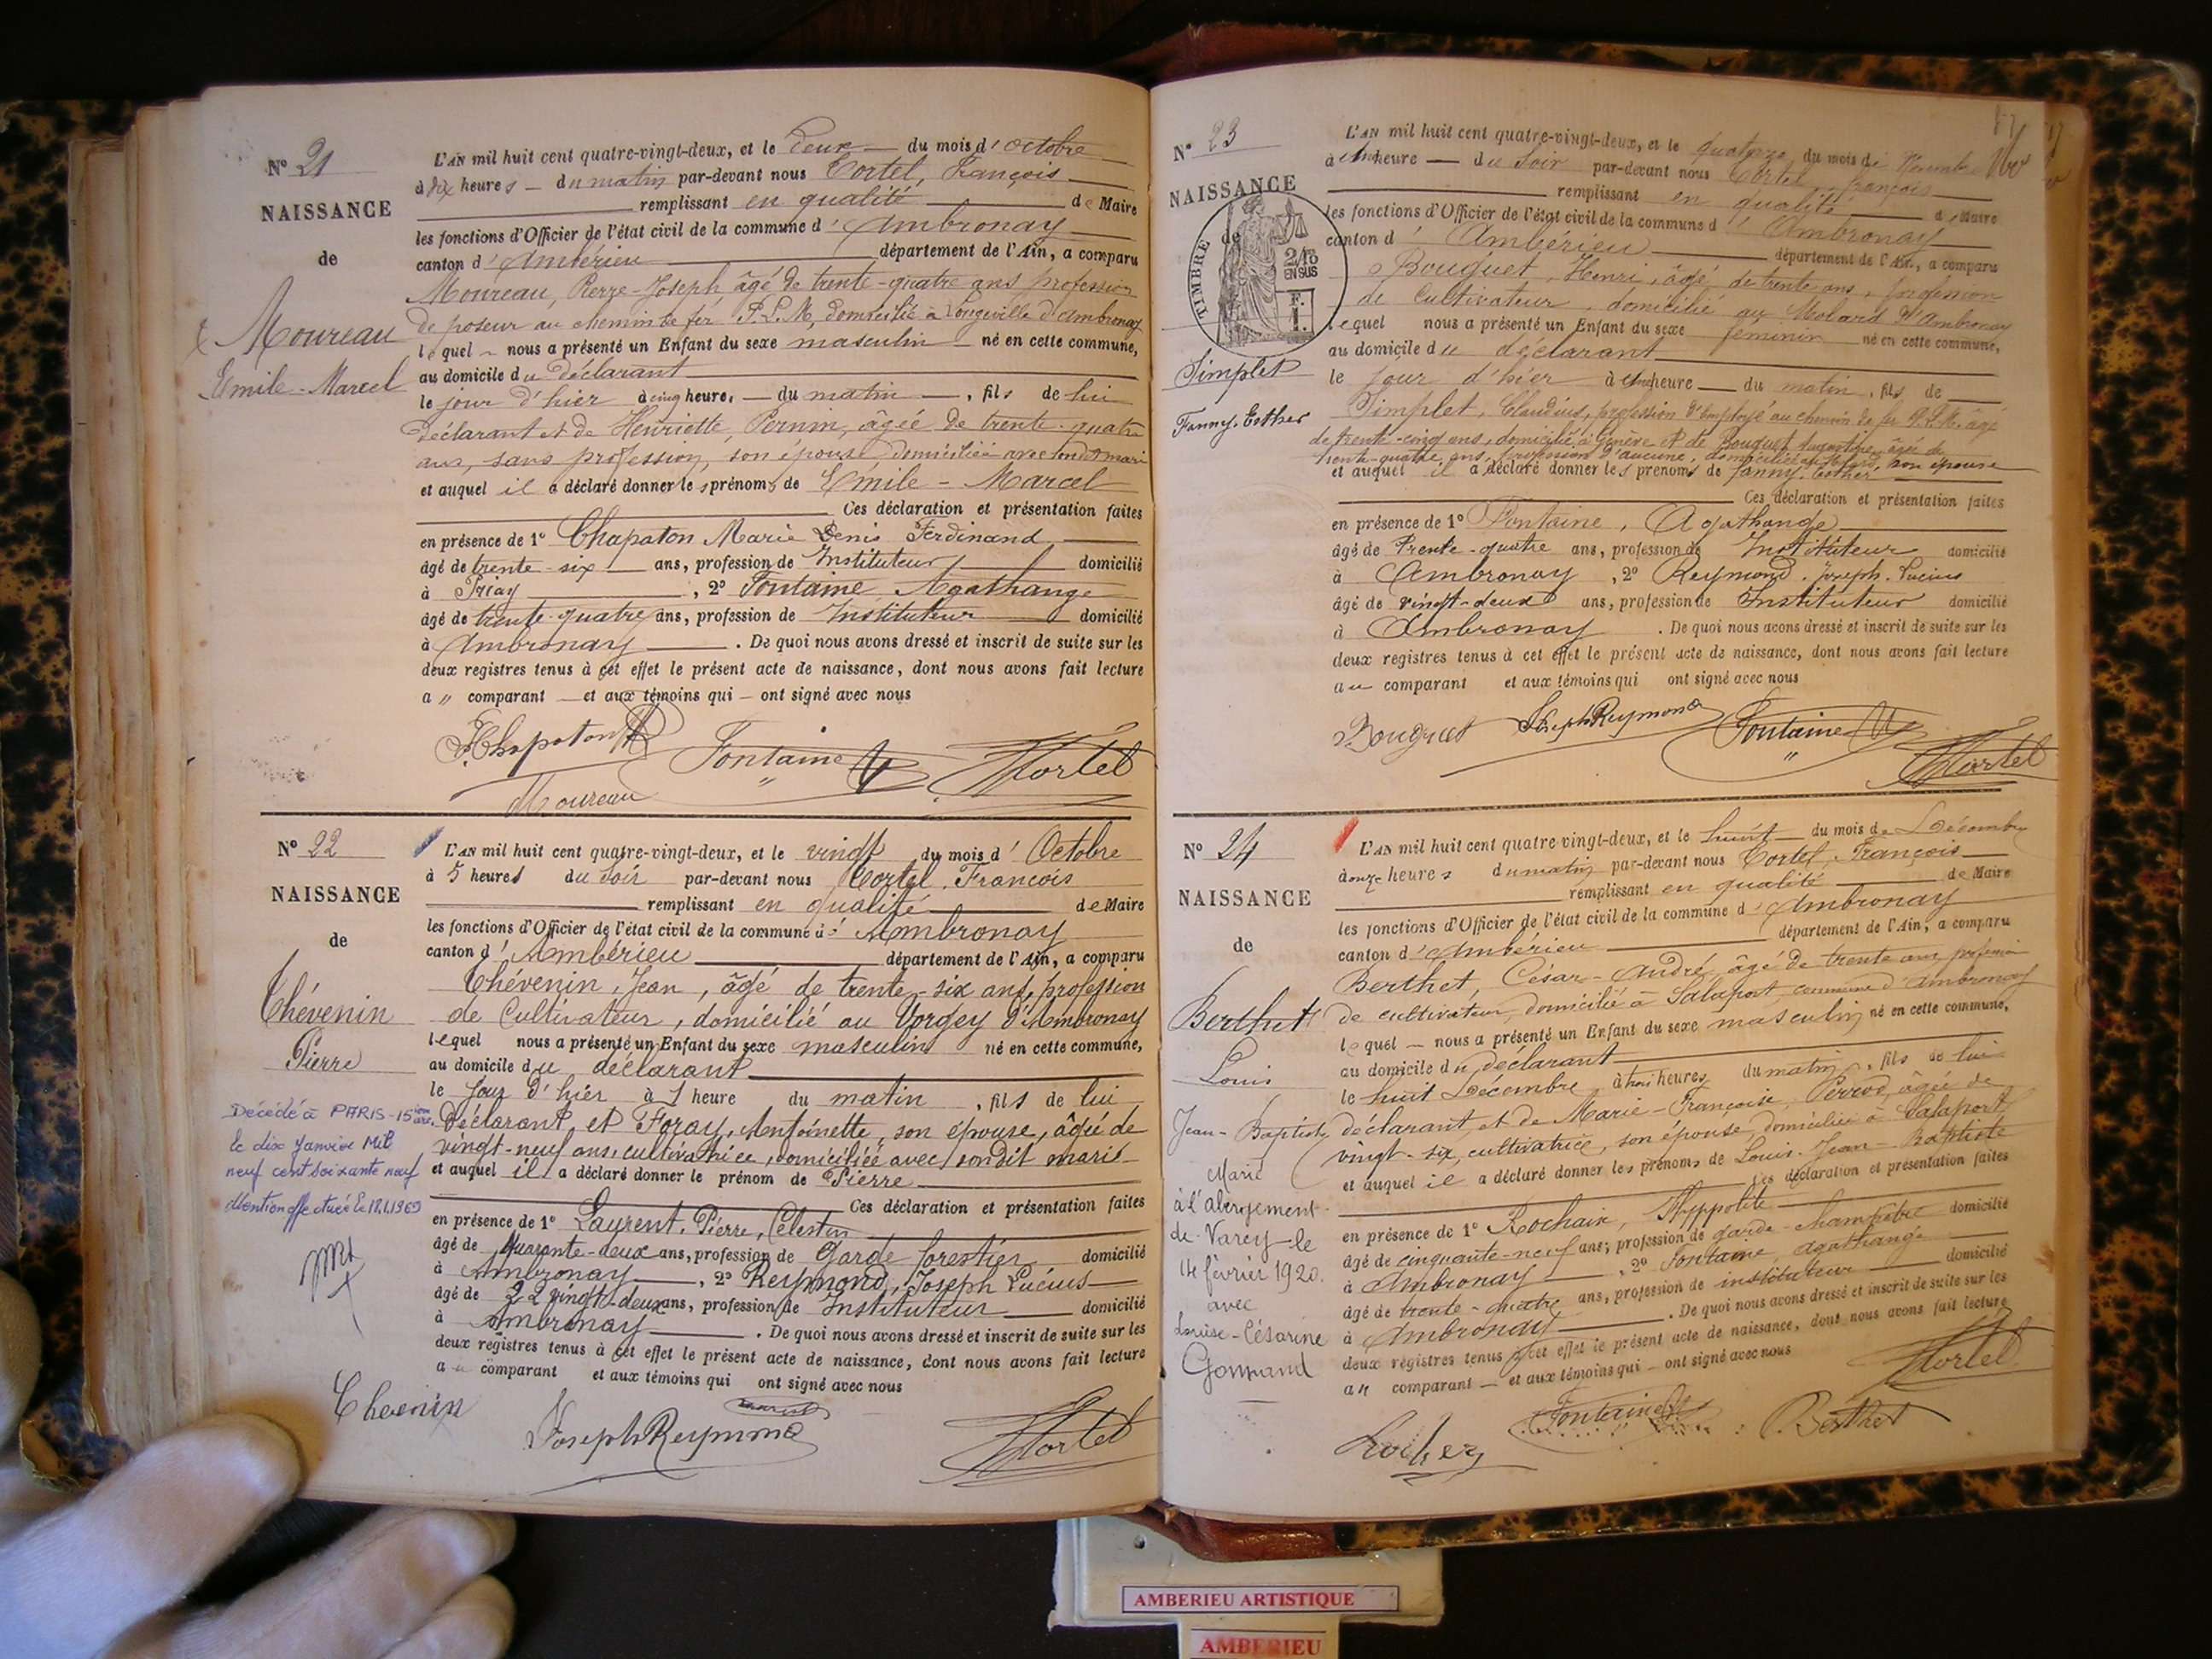 N° 21
NAISSANCE
de
Moureau
Emile-Marcel
L'AN mil huit cent quatre-vingt-deux, et le deux du mois d'octobre
à dix heures du matin par-devant nous Tortel, François
remplissant en qualité de Maire
les fonctions d'Officier de l'état civil de la commune d'Ambronay
canton d'Ambérieu département de l'Ain, a comparu
Moureau, Pierre-Joseph âgé de trente-quatre ans profession
de poseur au chemin de fer P.L.M, domicilié à Longeville d'Ambronay
lequel nous a présenté un Enfant du sexe masculin né en cette commune,
au domicile du déclarant
le jour d'hier à cinq heures du matin, fils de lui
déclarant et de Henriette, Pernin, âgée de trente-quatre
ans, sans profession, son épouse domiciliée avec sondit mari
et auquel il a déclaré donner les prénoms de Émile - Marcel
Ces déclaration et présentation faites
en présence de 1° Chapaton Marie Denis Ferdinand
âgé de trente-six ans, profession de Instituteur domicilié
à Priay, 2° Fontaine Agathange
âgé de trente-quatre ans, profession de Instituteur domicilié
à Ambronay. De quoi nous avons dressé et inscrit de suite sur les
deux registres tenus à cet effet le présent acte de naissance, dont nous avons fait lecture
a " comparant et aux témoins qui ont signé avec nous
F. Chapaton
Fontaine
Tortel
Moureau
N° 22
NAISSANCE
de
Thévenin
Pierre
Décédé à PARIS-15ième arr.
le dix Janvier Mil
neuf cent soixante neuf
Mention effectuée le 18.1.1969
L'AN mil huit cent quatre-vingt-deux, et le vingt du mois d'Octobre
à 5 heures du soir par-devant nous Tortel, François
remplissant en qualité de Maire
les fonctions d'Officier de l'état civil de la commune d'Ambronay
canton d'Ambérieu département de l'Ain, a comparu
Thévenin, Jean, âgé de trente-six ans, profession
de Cultivateur, domicilié au Vorgey d'Ambronay
lequel nous a présenté un Enfant du sexe masculin né en cette commune,
au domicile du déclarant
le jour d'hier à 1 heure du matin, fils de lui
déclarant et Foray, Antoinette, son épouse, âgée de
vingt-neuf ans, cultivatrice, domiciliée avec sondit mari
et auquel il a déclaré donner le prénom de Pierre
Ces déclaration et présentation faites
en présence de 1° Laurent, Pierre, Célestin
âgé de Quarante-deux ans, profession de Garde forestier domicilié
à Ambronay, 2° Reymond, Joseph Lucius
âgé de 22 vingt-deux ans, profession de Instituteur domicilié
à Ambronay. De quoi nous avons dressé et inscrit de suite sur les
deux registres tenus à cet effet le présent acte de naissance, dont nous avons fait lecture
au comparant et aux témoins qui ont signé avec nous
Thevenin
Joseph Reymond
Tortel
N° 23
NAISSANCE
de
TIMBRE
2/10
EN SUS
F.
1.
Simplet
Fanny-Esther
L'AN mil huit cent quatre-vingt-deux, et le quatorze du mois de Novembre
à une heure du soir par-devant nous Tortel, françois
remplissant en qualité de Maire
les fonctions d'Officier de l'état civil de la commune d'Ambronay
canton d'Ambérieu département de l'Ain, a comparu
Bouquet, Henri, âgé de trente ans, profession
de Cultivateur, domicilié au Molard d'Ambronay
lequel nous a présenté un Enfant du sexe féminin né en cette commune,
au domicile du déclarant
le jour d'hier à une heure du matin, fils de
Simplet, Claudius, profession d'employé au chemin de fer P.L.M. âgé
de trente-cinq ans, domicilié à Genève et de Bouquet âgée de
trente-quatre ans, profession d'aucune, son épouse
et auquel il a déclaré donner les prénoms de Fanny-Esther
Ces déclaration et présentation faites
en présence de 1° Fontaine, Agathange
âgé de trente-quatre ans, profession de Instituteur domicilié
à Ambronay, 2° Reymond, Joseph-Lucius
âgé de vingt-deux ans, profession de Instituteur domicilié
à Ambronay. De quoi nous avons dressé et inscrit de suite sur les
deux registres tenus à cet effet le présent acte de naissance, dont nous avons fait lecture
au comparant et aux témoins qui ont signé avec nous
Bouquet
Joseph Reymond
Fontaine
Tortel
N° 24
NAISSANCE
de
Berthet
Louis
Jean-Baptiste
Marié
à l'abergement
de-Varey-le
14 février 1920.
avec
Louise-Césarine
Gormand
L'AN mil huit cent quatre-vingt-deux, et le huit du mois de Décembre
à onze heures du matin par-devant nous Tortel, François
remplissant en qualité de Maire
les fonctions d'Officier de l'état civil de la commune d'Ambronay
canton d'Ambérieu département de l'Ain, a comparu
Berthet, César-André âgé de trente ans profession
de cultivateur, domicilié à Salaport commune d'Ambronay
lequel nous a présenté un Enfant du sexe masculin né en cette commune,
au domicile du déclarant
le huit Décembre à trois heures du matin, fils de lui
déclarant, et de Marie-Françoise, Perrod, âgée de
vingt-six, cultivatrice, son épouse, domiciliée à Salaport
et auquel il a déclaré donner les prénoms de Louis-Jean-Baptiste
Ces déclaration et présentation faites
en présence de 1° Rochaix, Hyppolite
âgé de cinquante-neuf ans, profession de garde-champêtre domicilié
à Ambronay, 2° Fontaine, Agathange
âgé de trente-quatre ans, profession de instituteur domicilié
à Ambronay. De quoi nous avons dressé et inscrit de suite sur les
deux registres tenus à cet effet le présent acte de naissance, dont nous avons fait lecture
au comparant et aux témoins qui ont signé avec nous
Tortel
Fontaine
Berthet
AMBERIEU ARTISTIQUE
AMBERIEU